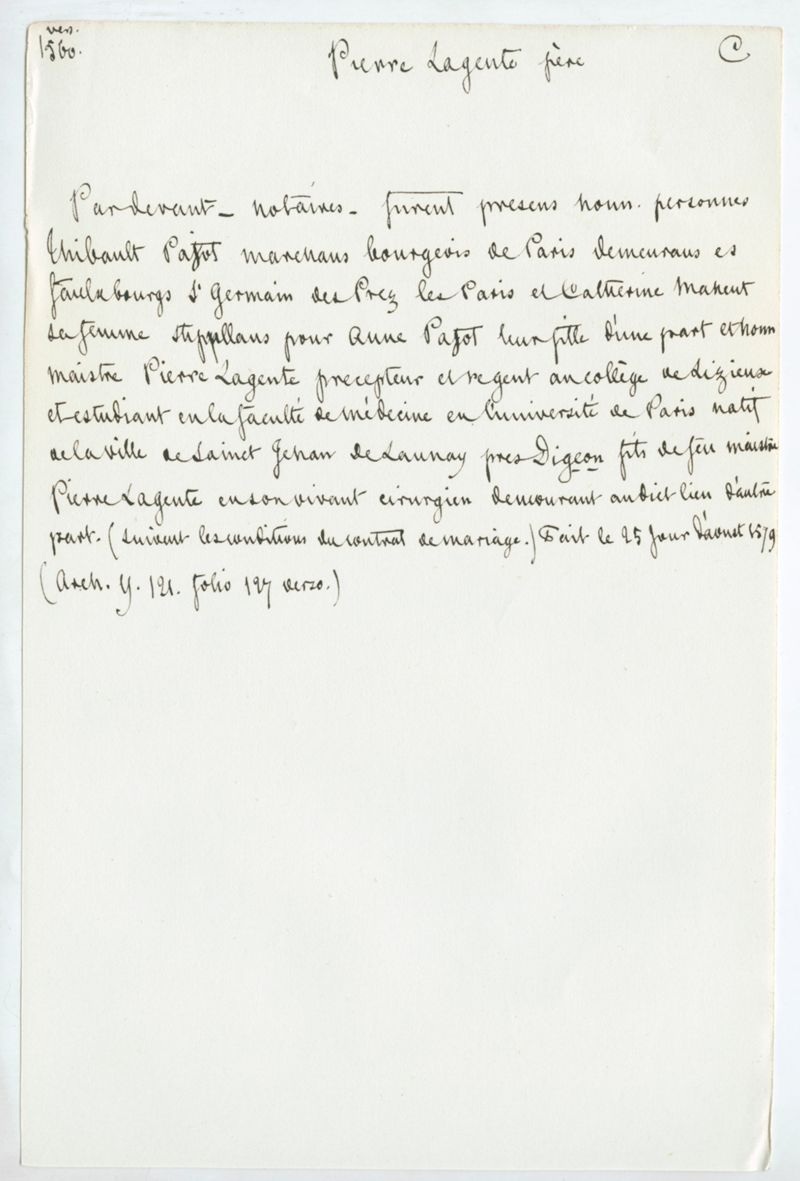 vers.
1560.
Pierre Lagente père
C
Pardevant _ notaires _ furent presens honn. personnes
Thibault Pajot marchans bourgeois de Paris demeurans es
faulxbourgs St Germain des Prez les Paris et Catherine Maheut
sa femme stippullans pour Anne Pajot leur fille d'une part et honn
maistre Pierre Lagente precepteur et regent au collège de Lizieux
et estudiant en la faculté de médecine en l'université de Paris natif
de la ville de Sainct Jehan de Launay pres Digeon fils de feu maistre
Pierre Lagente en son vivant cirurgien demourant audict lieu d'autre
part. (Suivent les conditions du contrat de mariage.) Fait le 25 jour d'aoust 1579
(Arch. Y. 121. folio 127 verso.)